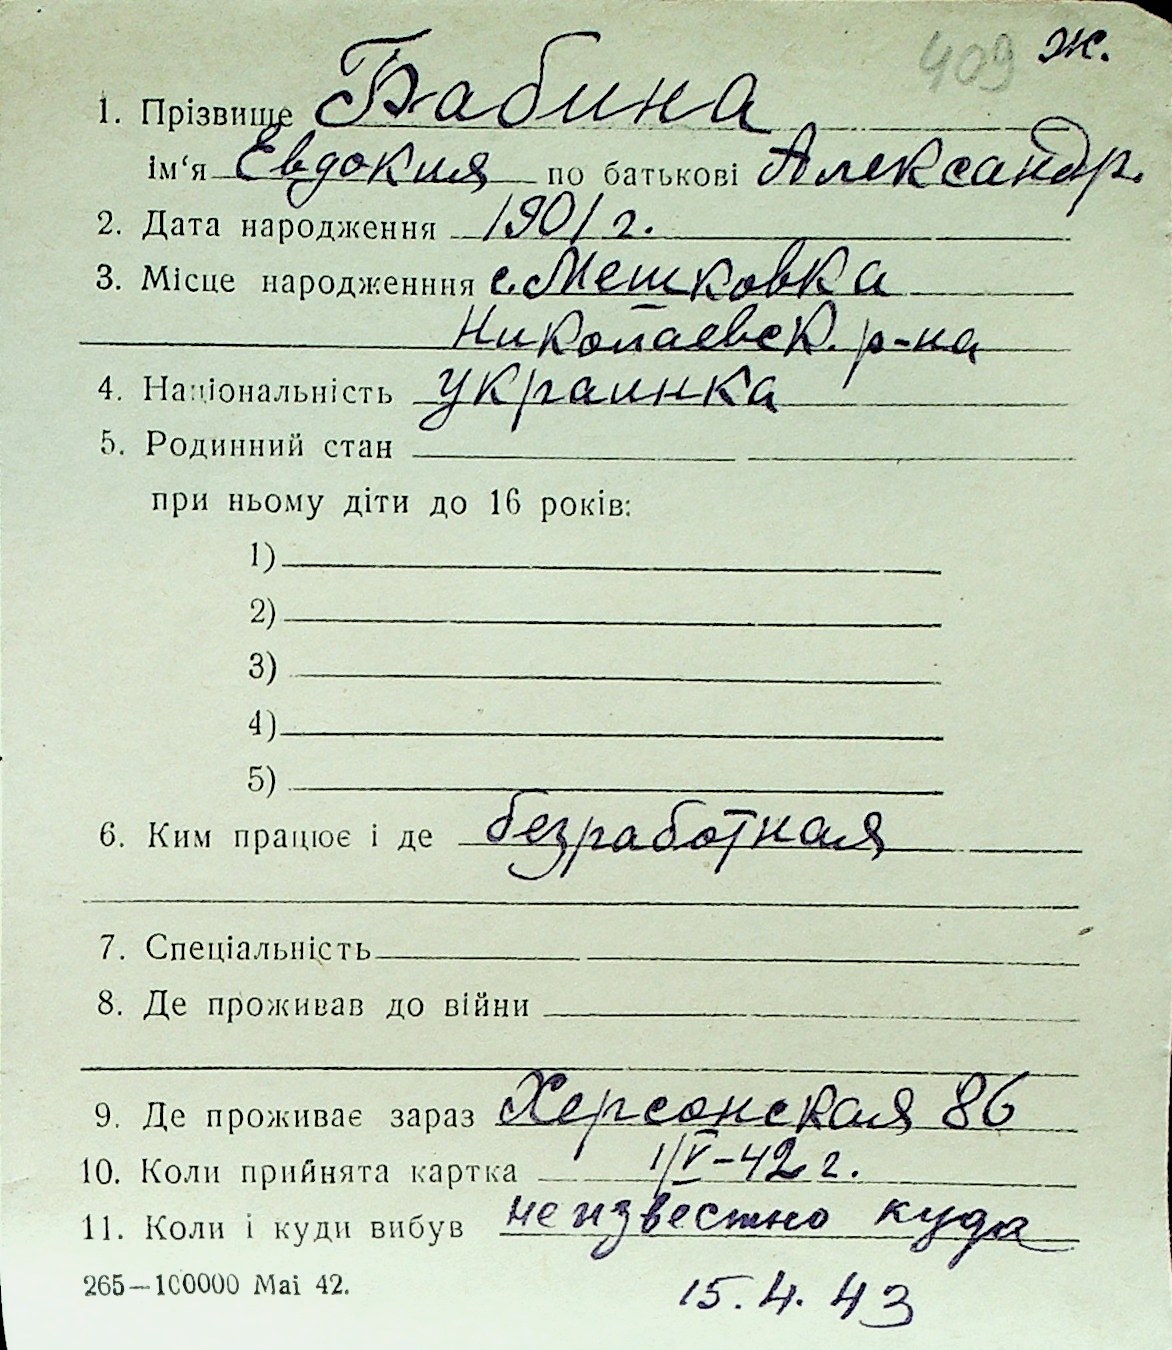 409 ж.
1. Прізвище Бабина
ім‘я Евдокия по батькові Александр.
2. Дата народження 1901 г.
3. Місце народженння с. Мешковка
Николаевск. р-на
4. Національність украинка
5. Родинний стан
при ньому діти до 16 років:
1)
2)
3)
4)
5)
6. Ким працює і де безработная
7. Спеціальність
8. Де проживав до війни
9. Де проживає зараз Херсонская 86
10. Коли прийнята картка 1/V-42 г.
11. Коли і куди вибув неизвестно куда
265—100000 Mai 42. 15.4.43